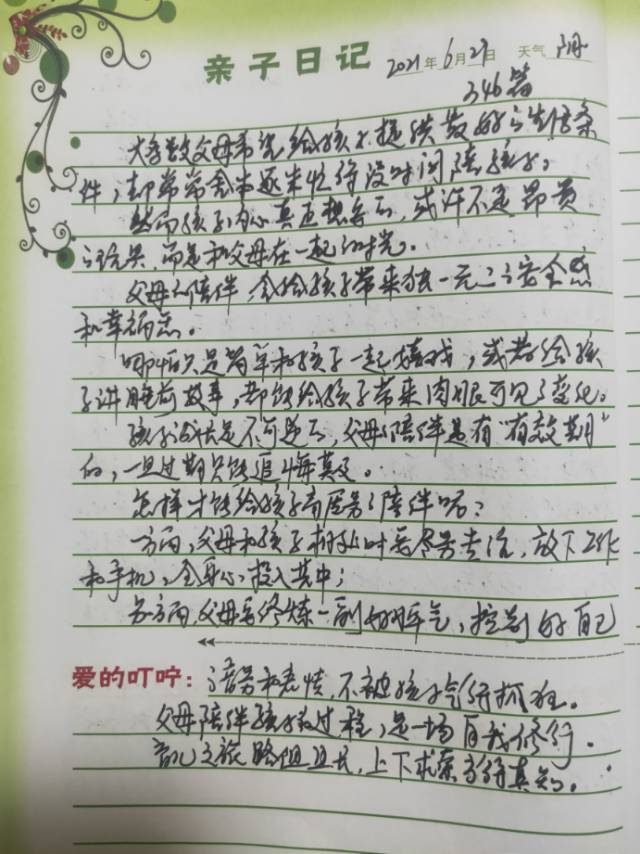 亲子日记 2021年6月27日 天气 阴
346篇
大多数父母希望给孩子提供最好的生活条
件，却常常舍本逐末忙得没时间陪孩子；
然而孩子内心真正想要的，或许不是昂贵
的玩具，而是和父母在一起的时光。
父母的陪伴，会给孩子带来独一无二的安全感
和幸福感。
哪怕只是简单和孩子一起嬉戏，或者给孩
子讲睡前故事，都能给孩子带来肉眼可见的变化。
孩子的成长是不可逆的，父母的陪伴是有“有效期”
的，一旦过期只能追悔莫及。
怎样才能给孩子高质量的陪伴呢？
一方面，父母和孩子相处时要尽量专注，放下工作
和手机，全身心投入其中；
另一方面，父母要修炼一副好脾气，控制好自己
爱的叮咛：的语气和表情，不被孩子气得抓狂。
父母陪伴孩子的过程，是一场自我修行。
育儿之旅路阻且长，上下求索方得真知。